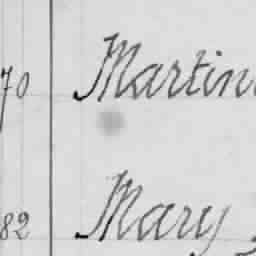 70 Martin
82 Mary